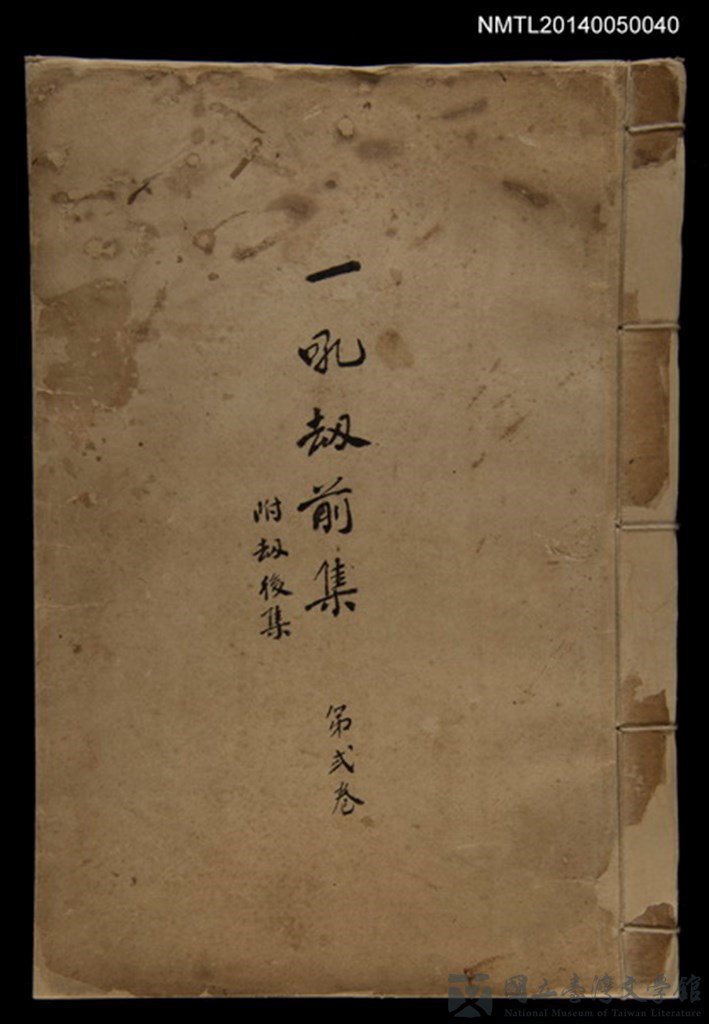 NMTL20140050040
一吼劫前集
附劫後集
第弍卷
國立臺灣文學館
National Museum of Taiwan Literature